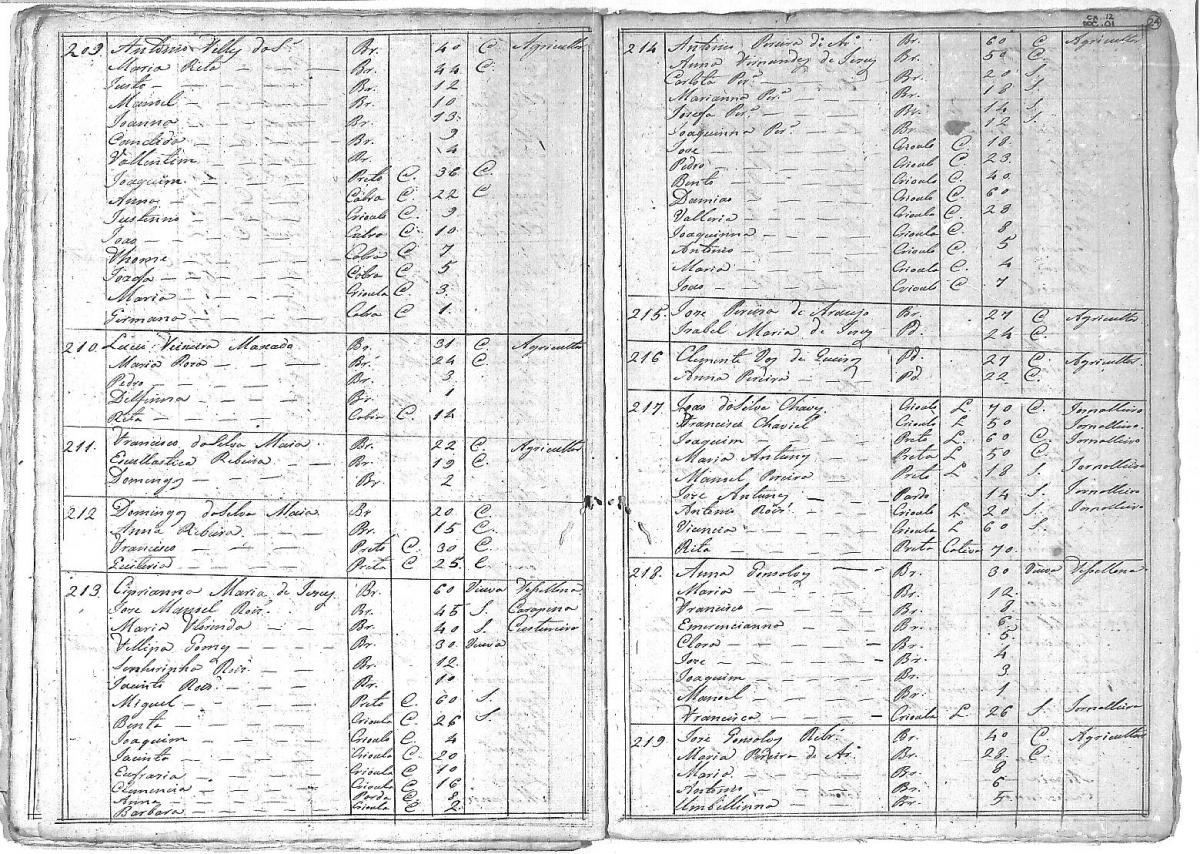 CX 12
DOC. 01
24
209 Antonio Velly do S.ª Br. 40 C Agricultor
Maria Rita Br. 44 C.
Justo Br. 12
Manoel Br. 10
Joanna Br. 13
Candida Br. 9
Vallentim Br. 4
Joaquim Preto C. 36 C
Anna Cabra C. 22 C
Justinno Crioulo C. 9
Joao Cabra C. 10
Thome Cabra C 7
Jozefa Cabra C 5
Maria Crioula C 3
Germano Cabra C 1
210 Vieira Maxado Br. 31 C. Agricultor
Maria Roza Br. 24 C
Pedro Br. 3
Delfinna Br. 1
Rita Cabra C 14
211. Francisco da Silva Maia Br. 22 C. Agricultor
Escullastica Ribeira Br. 19 C.
Domingos Br 2
212 Domingos da Silva Maia Br 20 C.
Anna Ribeira Br. 15 C.
Francisco Preto C. 30 C.
Quiteria Preta C 25 C.
213 Ciprianna Maria de Jezus Br. 60 Viuva
Joze Manoel Roiz. Br. 45 S. Carapina
Maria Florinda Br. 40 S. Custureira
Gomes Br. 30 Viuva
Senhorinha Roiz. Br. 12
Jacinto Roiz. Br. 10
Miguel Preto C. 60 S.
Bento Crioulo C 26 S.
Joaquim Crioulo C 4
Jacinta Crioula C 20
Eufraria Crioula C 10
Clemencia Crioula C 16
Anna Parda C 8
Barbara Crioula C 2
214 Antonio Pereira de Ar.º Br. 60 C Agricultor
Anna Fernandes de Jezus Br. 50 C.
Carlota Per.ª Br. 20 S.
Marianna Per.ª Br. 18 S.
Jozefa Per.ª Br. 14 S.
Joaquinna Per.ª Br. 12 S.
Joze Crioulo C. 18
Pedro Crioulo C. 23
Bento Crioulo C. 40
Damiao Crioulo C. 60
Valleria Crioula C 28
Joaquinna Crioula C. 8
Antonio Crioulo C 5
Maria Crioula C 4
Joao Crioulo C 7
215 Joze Pereira de Araujo Br. 27 C Agricultor
Isabel Maria de Jezus Pd. 24 C.
216 Clemente Vas de Queiroz Pd. 27 C Agricultor
Anna Pereira Pd. 22 C.
217 Joao da Silva Chaves Crioulo L. 70 C. Jornalleiro
Francisco Crioulo L 50 Jornalleiro
Joaquim Preto L. 60 C Jornalleiro
Maria Antunes Preta L. 50 C
Manoel Pereira Preto L 18 S. Jornalleiro
Joze Antunes Pardo 14 S. Jornalleiro
Antonio Roiz. Crioulo L 20 S Jornalleiro
Vicencia Crioula L 60 S.
Rita Preta Cativa 70
218. Anna Gonsolves Br. 30 Viuva
Maria Br. 12
Francisco Br. 8
Emerencianna Br. 6
Clara Br. 5
Joze Br. 4
Joaquim Br. 3
Manoel Br. 1
Francisca Crioula L. 26 S. Jornalleira
219 Joze Gonsolves Br. 40 C Agricultor
Maria Pereira de Ar. Br. 28 C.
Maria Br. 8
Antonio Br. 6
Umbellinna Br. 5